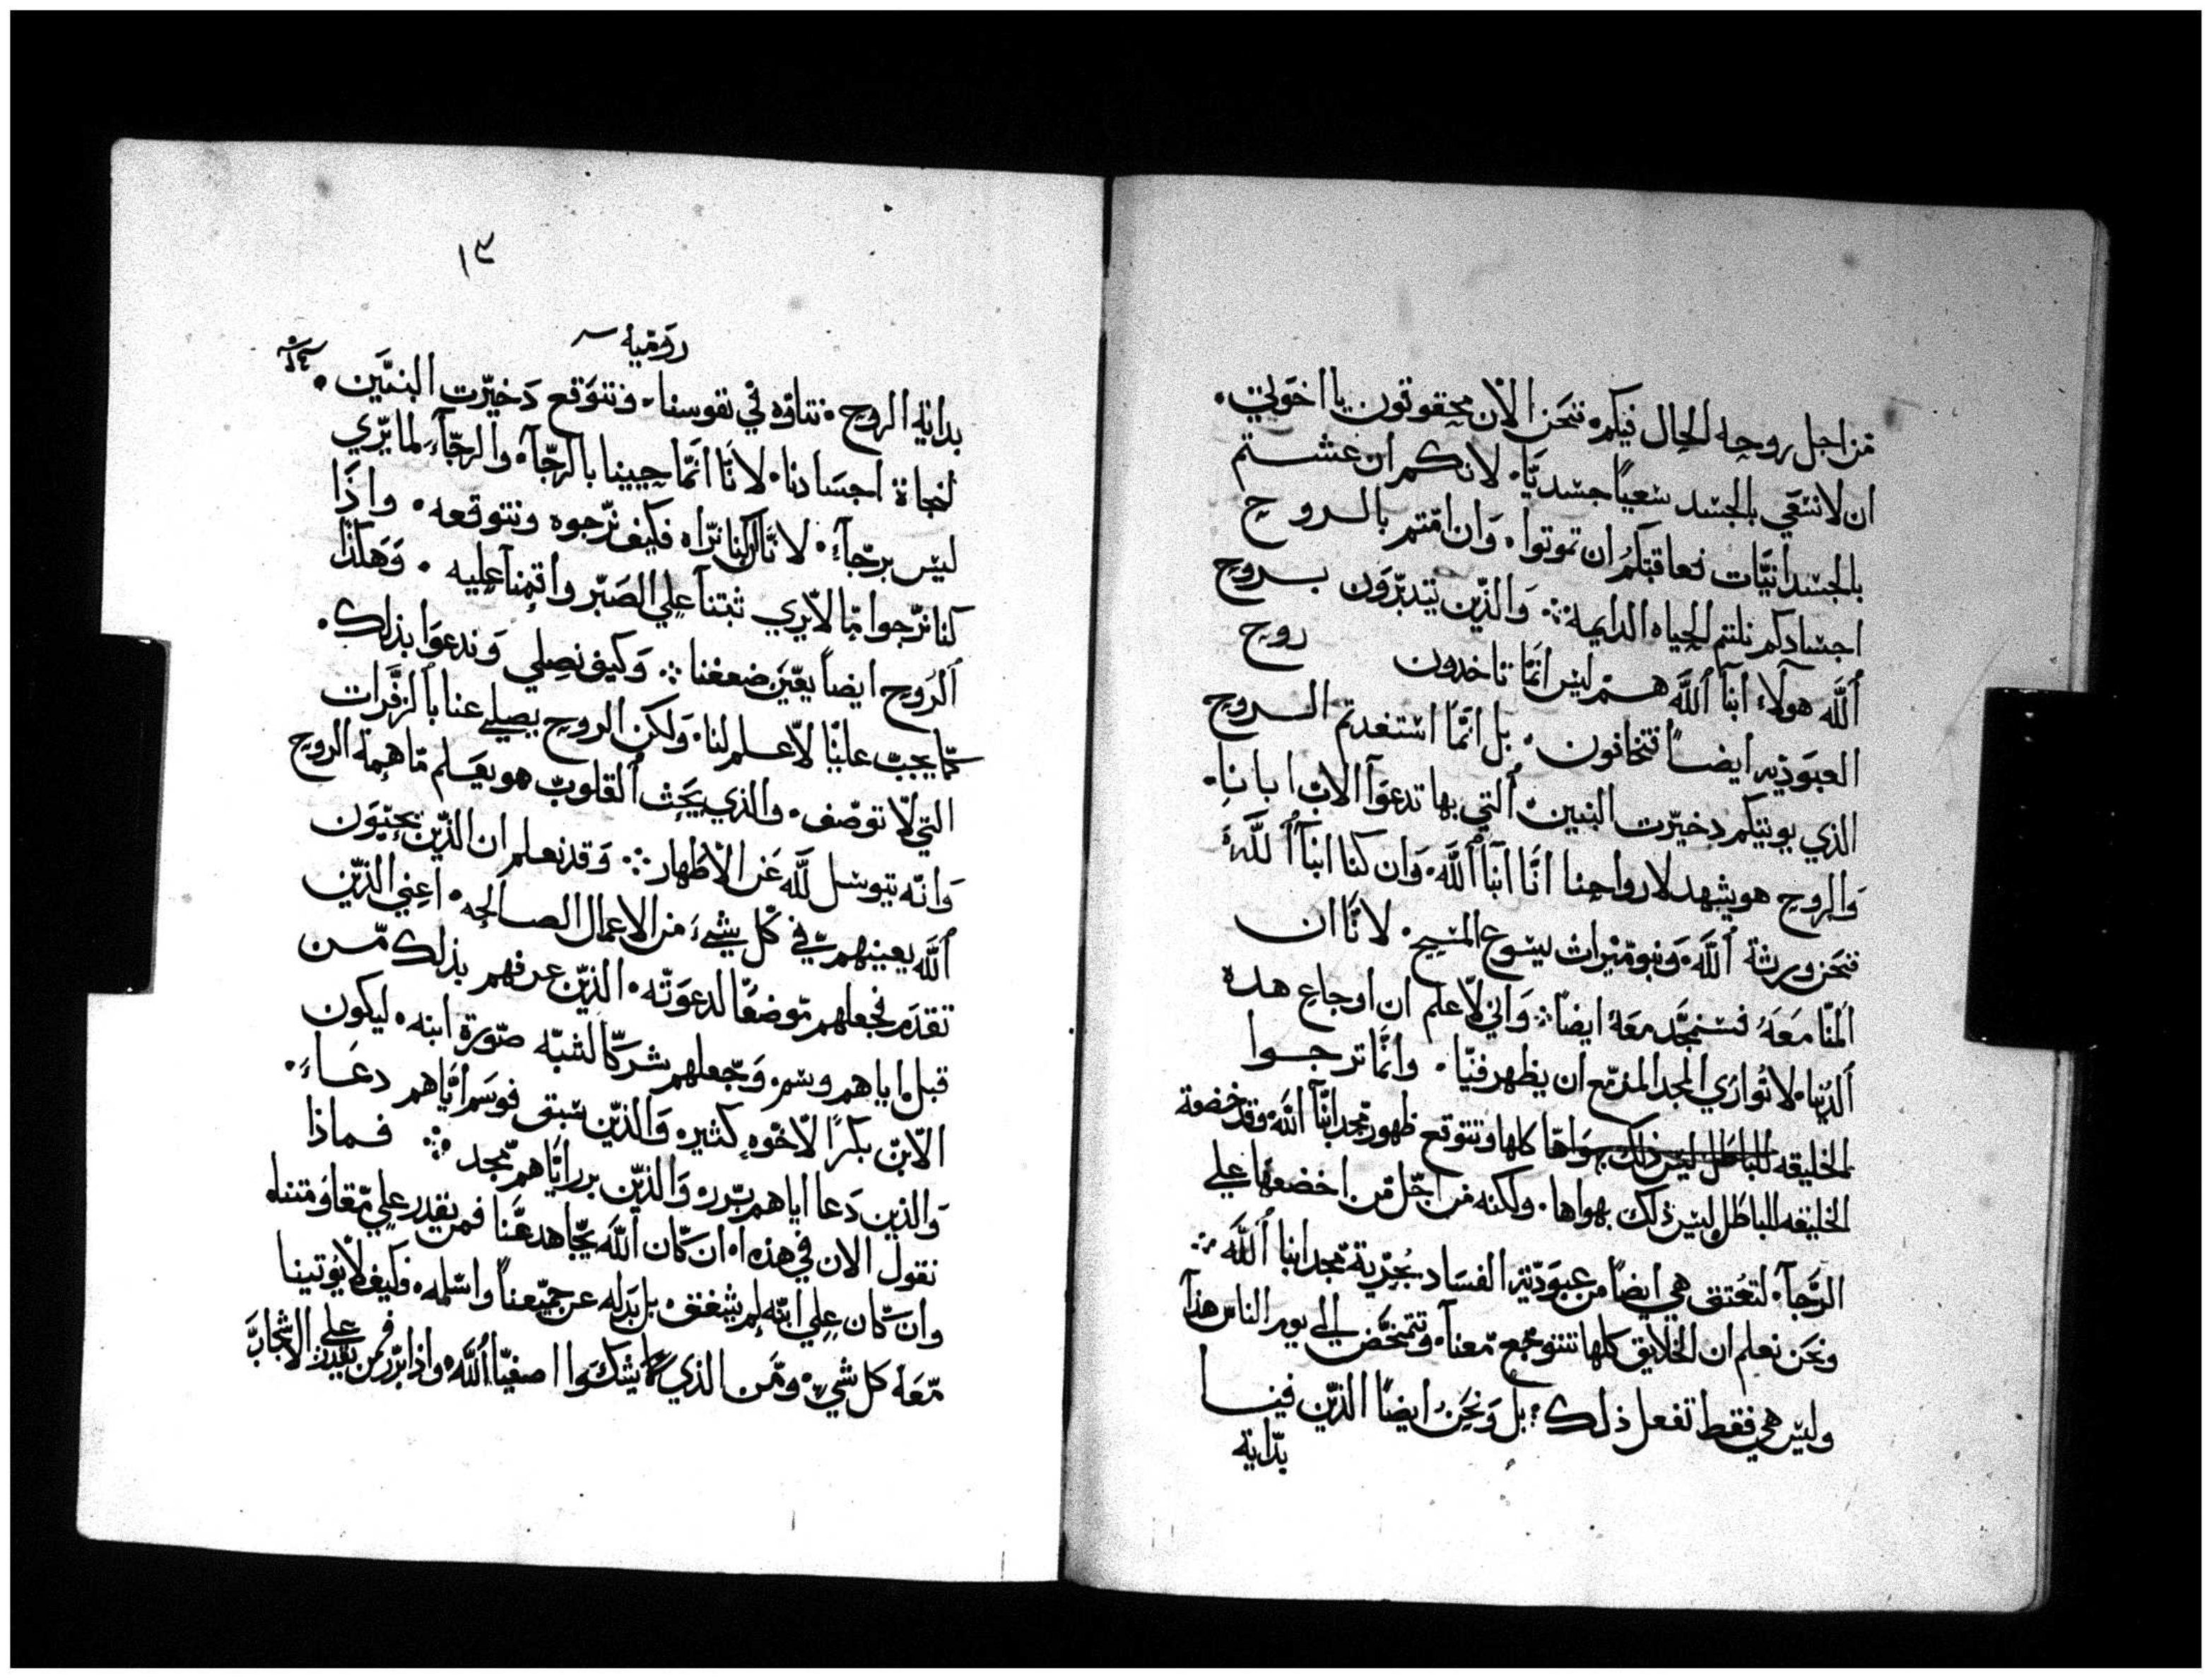 من اجل روحه الحال فيكم، فنحن الان محقوقون يا اخوتي.
ان لانسعي بالجسد سعيًا جسديًا. لانكم ان عشتم
بالجسدانيات فعاقبتكم ان تموتوا. وان امتم بالروح
اجسادكم نلتم الحياه الدايمه. والذين يتدبرون بروح
الله هولاء ابنآ الله هم ليس انما تاخدون روح
العبوديه ايضًا فتخافون. بل انما استفدتم الروح
الذي يوتيكم دخيرت البنين التي بها تدعوآ الاب ابانا.
والروح هو يشهد لارواحنا انّا ابنآ الله. وان كنا ابنآ الله
فنحن ورثة الله. وبنو ميراث يسوع المسيح. لانّا ان
المنا معه فسنمجد معه ايضًا. واني لاعلم ان اوجاع هده
الدنيا. لاتُوازي المجد المزمع ان يظهر فينا. وانما ترجوا
الخليقه للباطل ليس ذلك بهواها كلها وتتوقع ظهور مجد ابنآ الله وقد خضعة
الخليقه للباطل ليس ذلك بهواها. ولكنه من اجل من اخضعها علي
الرجآ. لتعتق هي ايضًا من عبودية الفساد بحرية مجد ابنا الله
ونحن نعلم ان الخلايق كلها تتوجع معنآ. وتتمخض الي يوم الناس هذا
وليس هي فقط تفعل ذلك؛ بل ونحن ايضًا الذين فينا
بداية
١٣
روميه
بداية الروح. نتاوه في نفوسنا. ونتوقع دخيرت البنين.
لنجاة اجسادنا. لانّا انما حيينا بالرجآ. والرجآء لما يري
ليس برجآء. لانّا ان كنا نراه فكيف نرجوه ونتوقعه. واذا
كنا نرجوا ما لا يري ثبتنا علي الصبر واقمنا عليه. وهكذا
الروح ايضًا يعين ضعفنا. وكيف نصلي وندعوا بذلك.
كما يجب علينا لا علم لنا. ولكن الروح يصلي عنا بالزفرات
التي لا توصف. والذي يبحث القلوب هو يعلم ما همة الروح
وانه يتوسل لله عن الاطهار. وقد نعلم ان الذين يحبون
الله يعينهم في كل شيء من الاعمال الصالحه. اعني الذين
تقدم فجعلهم موضعًا لدعوته. الذين عرفهم بذلك من
قبل اياهم وسم. وجعلهم شركا لشبه صورة ابنه. ليكون
الابن بكرًا لاخوه كثيره والذين سبق فوسم اياهم دعاء.
والذين دعا اياهم برر. والذين برر اياهم مجد. فماذا
نقول الان في هذه ان كان الله يجاهد عنا فمن يقدر علي مقاومتنا
وان كان علي ابنه لم يشفق. بل بدله عن جميعنا واسلمه. فكيف لا يوتينا
معه كل شيء. ومن الذي يشكوا اصفيا الله واذا برر فمن يقدر علي الاشجاب